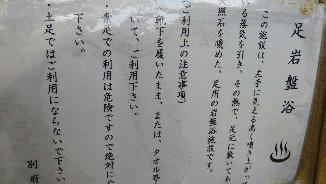 足岩盤浴
♨
この施設は、左手に見える高く噴き上がっ
る蒸気を引き、その熱で、足元に敷いてあ
照石を暖めた、足用の岩盤浴施設です。
(ご利用上の注意事項)
靴下を履いたまま、または、タオル等
いて、ご利用下さい。
・素足での利用は危険ですので絶対に
下さい。
・土足ではご利用にならないで下さい
別府